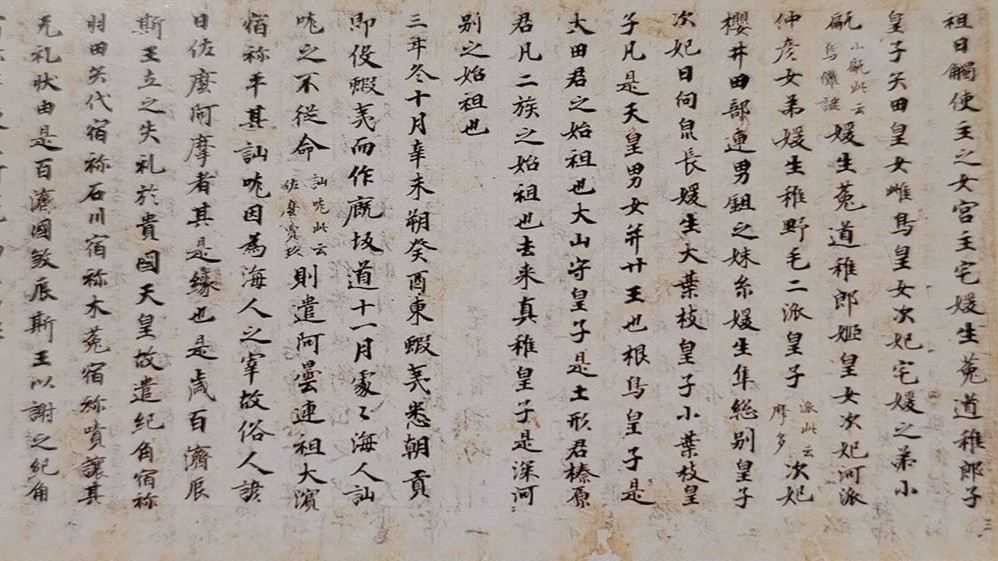 祖日觸使主之女宮主宅媛生菟道稚郎子
皇子矢田皇女雌鳥皇女次妃宅媛之弟小
甂小甂此云烏儺謎媛生菟道稚郎姫皇女次妃河派
仲彦女弟媛生稚野毛二派皇子派此云摩多次妃
櫻井田部連男鉏之妹糸媛生隼総别皇子
次妃日向泉長媛生大葉枝皇子小葉枝皇
子凡是天皇男女并廿王也根鳥皇子是
大田君之始祖也大山守皇子是土形君榛原
君凡二族之始祖也去来真稚皇子是深河
别之始祖也
三年冬十月辛未朔癸酉東蝦夷悉朝貢
即役蝦夷而作厩坂道十一月處〻海人訕
哤之不従命訕哤此云佐麼賣玖則遣阿曇連祖大濱
宿祢平其訕哤因為海人之宰故俗人諺
曰佐麼阿摩者其是縁也是歳百濟辰
斯王立之失礼於貴國天皇故遣紀角宿祢
羽田矢代宿祢石川宿祢木菟宿祢嘖讓其
无礼状由是百濟國殺辰斯王以謝之紀角